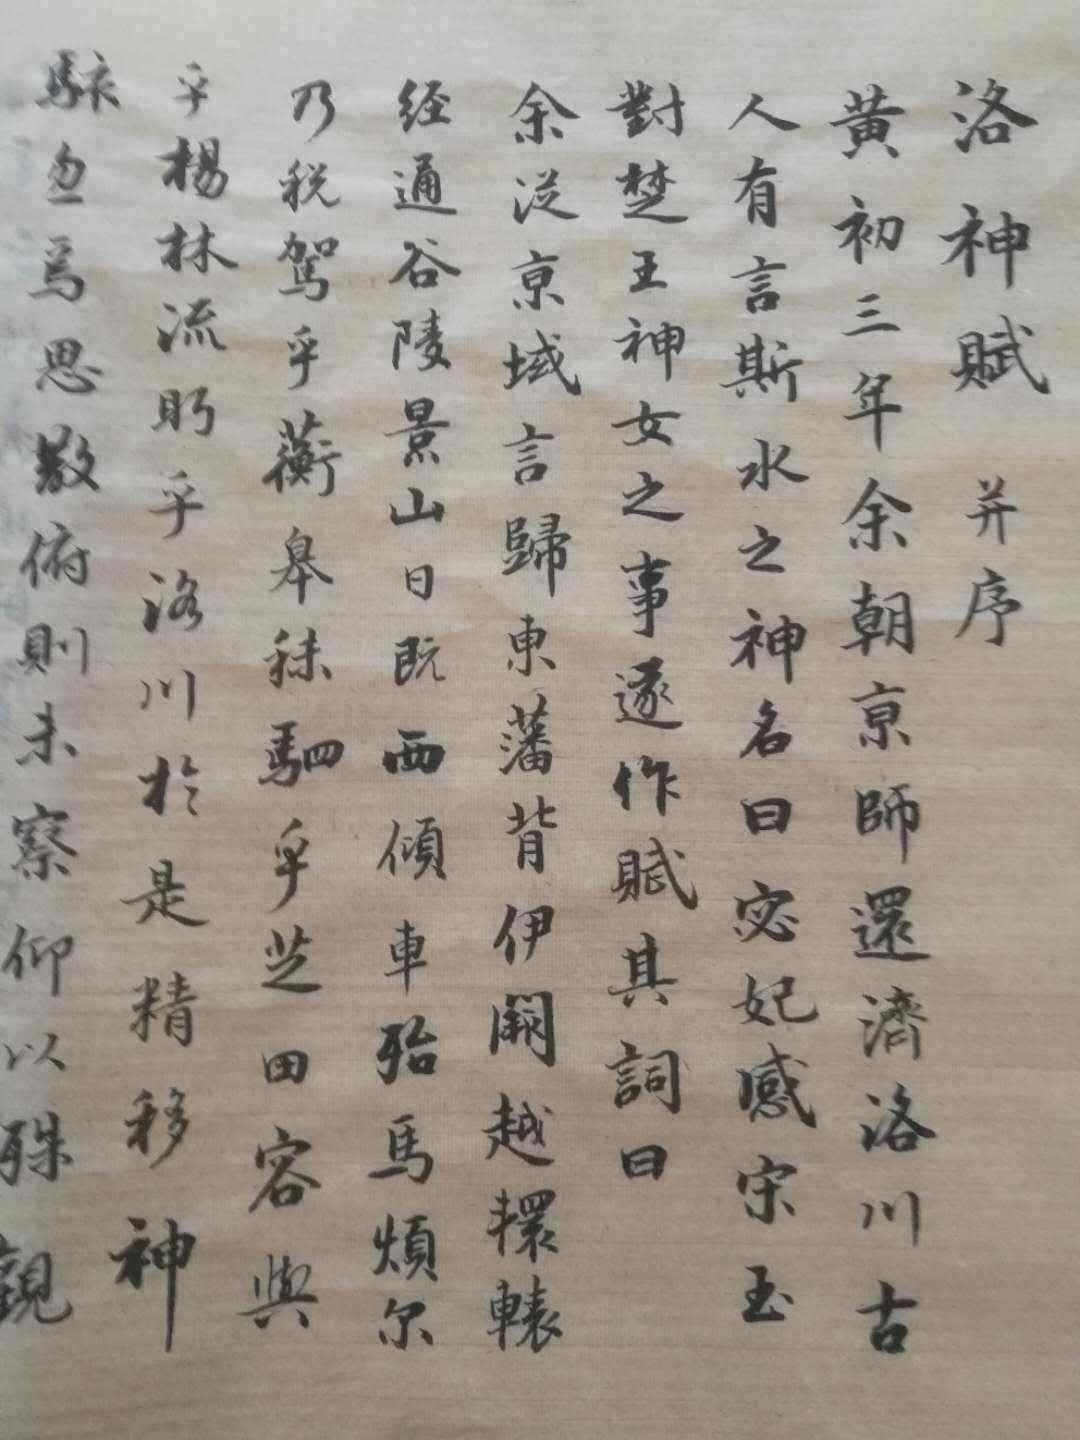 洛神賦 并序
黄初三年余朝京師還濟洛川古
人有言斯水之神名曰宓妃感宋玉
對楚王神女之事遂作賦其詞曰
余从京域言歸東藩背伊闕越轘轅
经通谷陵景山日既西傾車殆馬煩尔
乃税駕乎蘅皋秣駟乎芝田容與
乎楊林流眄乎洛川於是精移神
駭忽焉思散俯則未察仰以殊觀